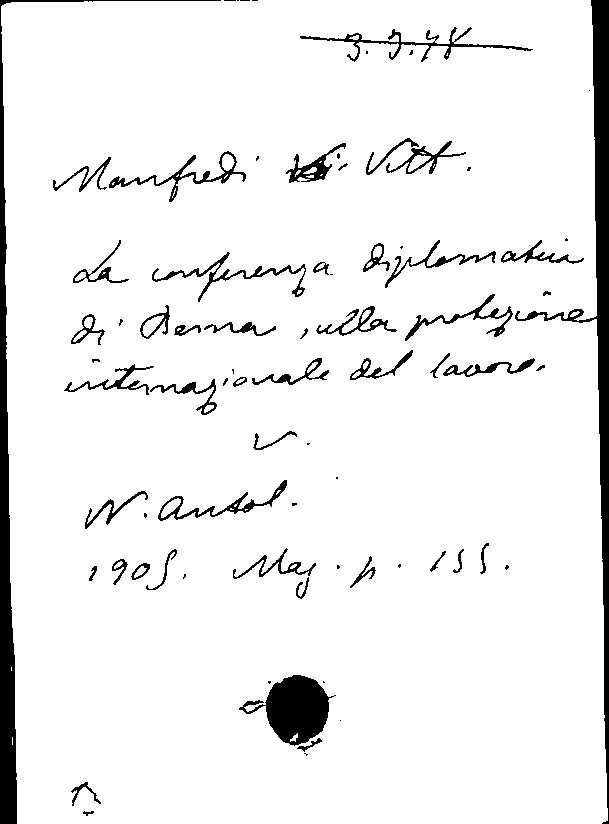 3.3.48
Manfredi Vitt.
La conferenza diplomatica
di Berna sulla protezione
internazionale del lavoro.
V.
N. Antol.
1905. Mag. p. 155.